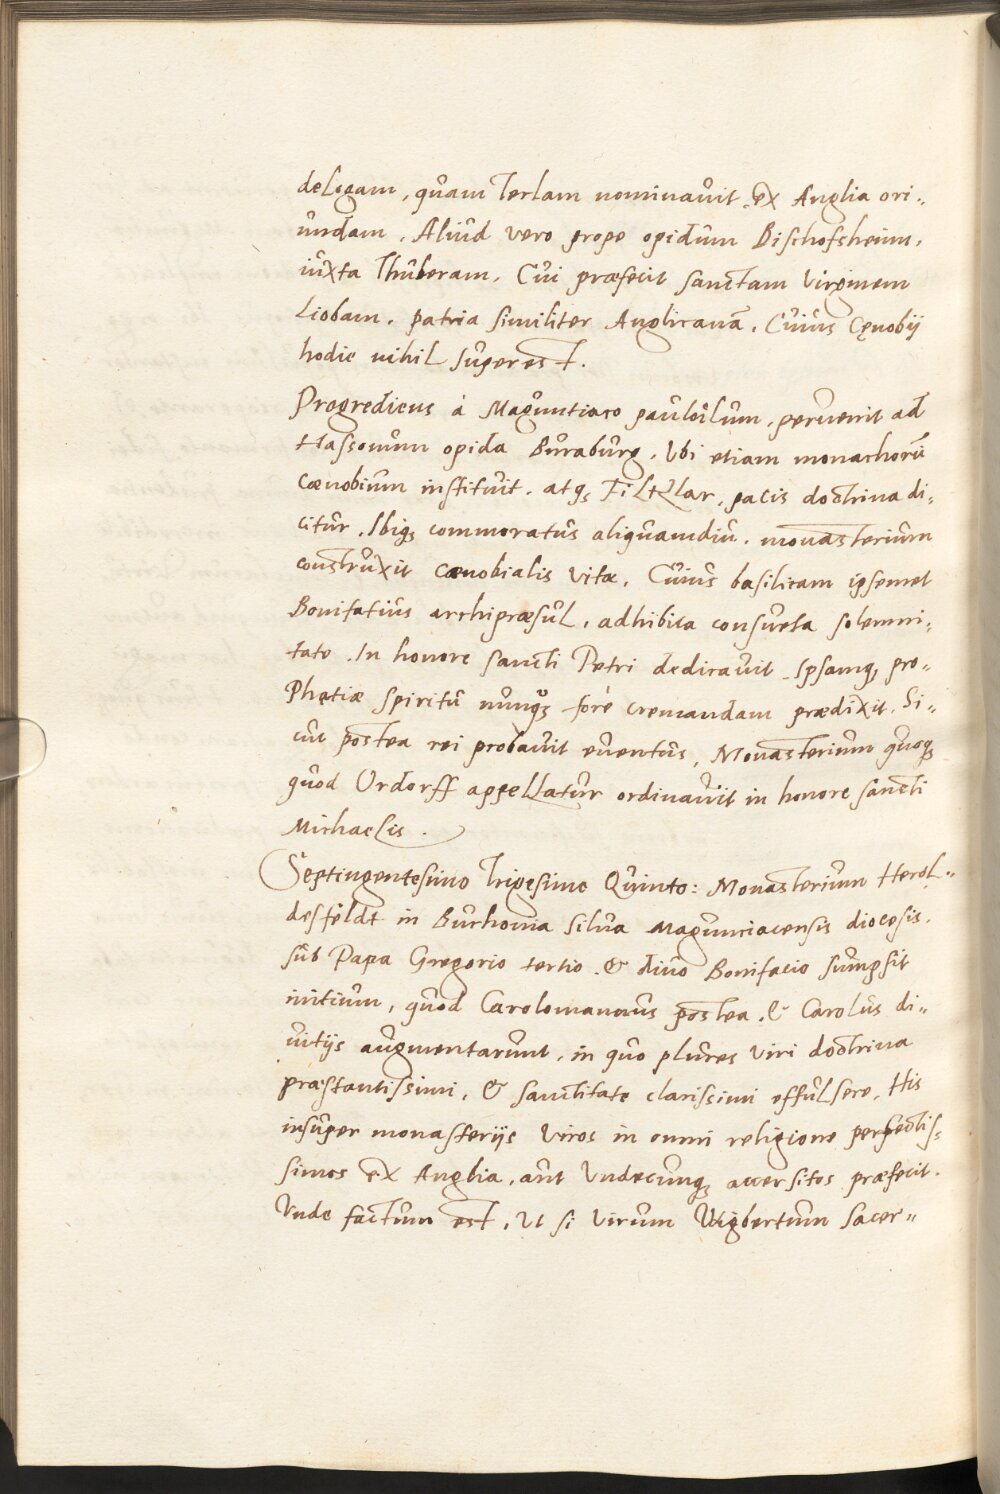 delogam, quam Terlam nominauit. ex Anglia ori„
undam. Aliud vero prope opidum Bischofsheim,
iuxta Thuberam. Cui præfecit sanctam Virginem
Liobam. patria similiter Anglicanā. Cuius Cęnobij
hodie nihil superest.
Progrediens á Maguntiaco paulùlum, peruenit ad
Hassonum opida Buraburg. Vbi etiam monachorū
cænobium instituit. atq; Fritzlar, pacis doctrina di„
citur. Ibiq; commoratus aliquamdiu. monasterium
construxit cænobialis vitæ. Cuius basilicam ipsemet
Bonifatius archipræsul, adhibita consueta solemni„
tate. In honore sancti Petri dedicauit. Ipsamq; pro„
phetiæ spiritu nunq̃; foré cremandam prædixit. Si„
cut postea rei probauit euentus, Monasterium quoq;
quod Ordorff appellatur ordinauit in honore sancti
Michaelis.
Septingentesimo Trigesimo Quinto: Monasterium Herol„
desfeldt in Buchonia silua Magunciacensis diocesis.
sub Papa Gregorio tertio. & diuo Bonifacio sumpsit
initium, quod Carolomannus postea. & Carolus di„
uitijs augmentarunt. in quo plures viri doctrina
præstantissimi, & sanctitate clarissimi effulsere, His
insuper monasterijs viros in omni religione perfectis„
simos ex Anglia, aut vndecunq; accersitos præfecit.
Vnde factum est, Vt si virum Wigbertum sacer„